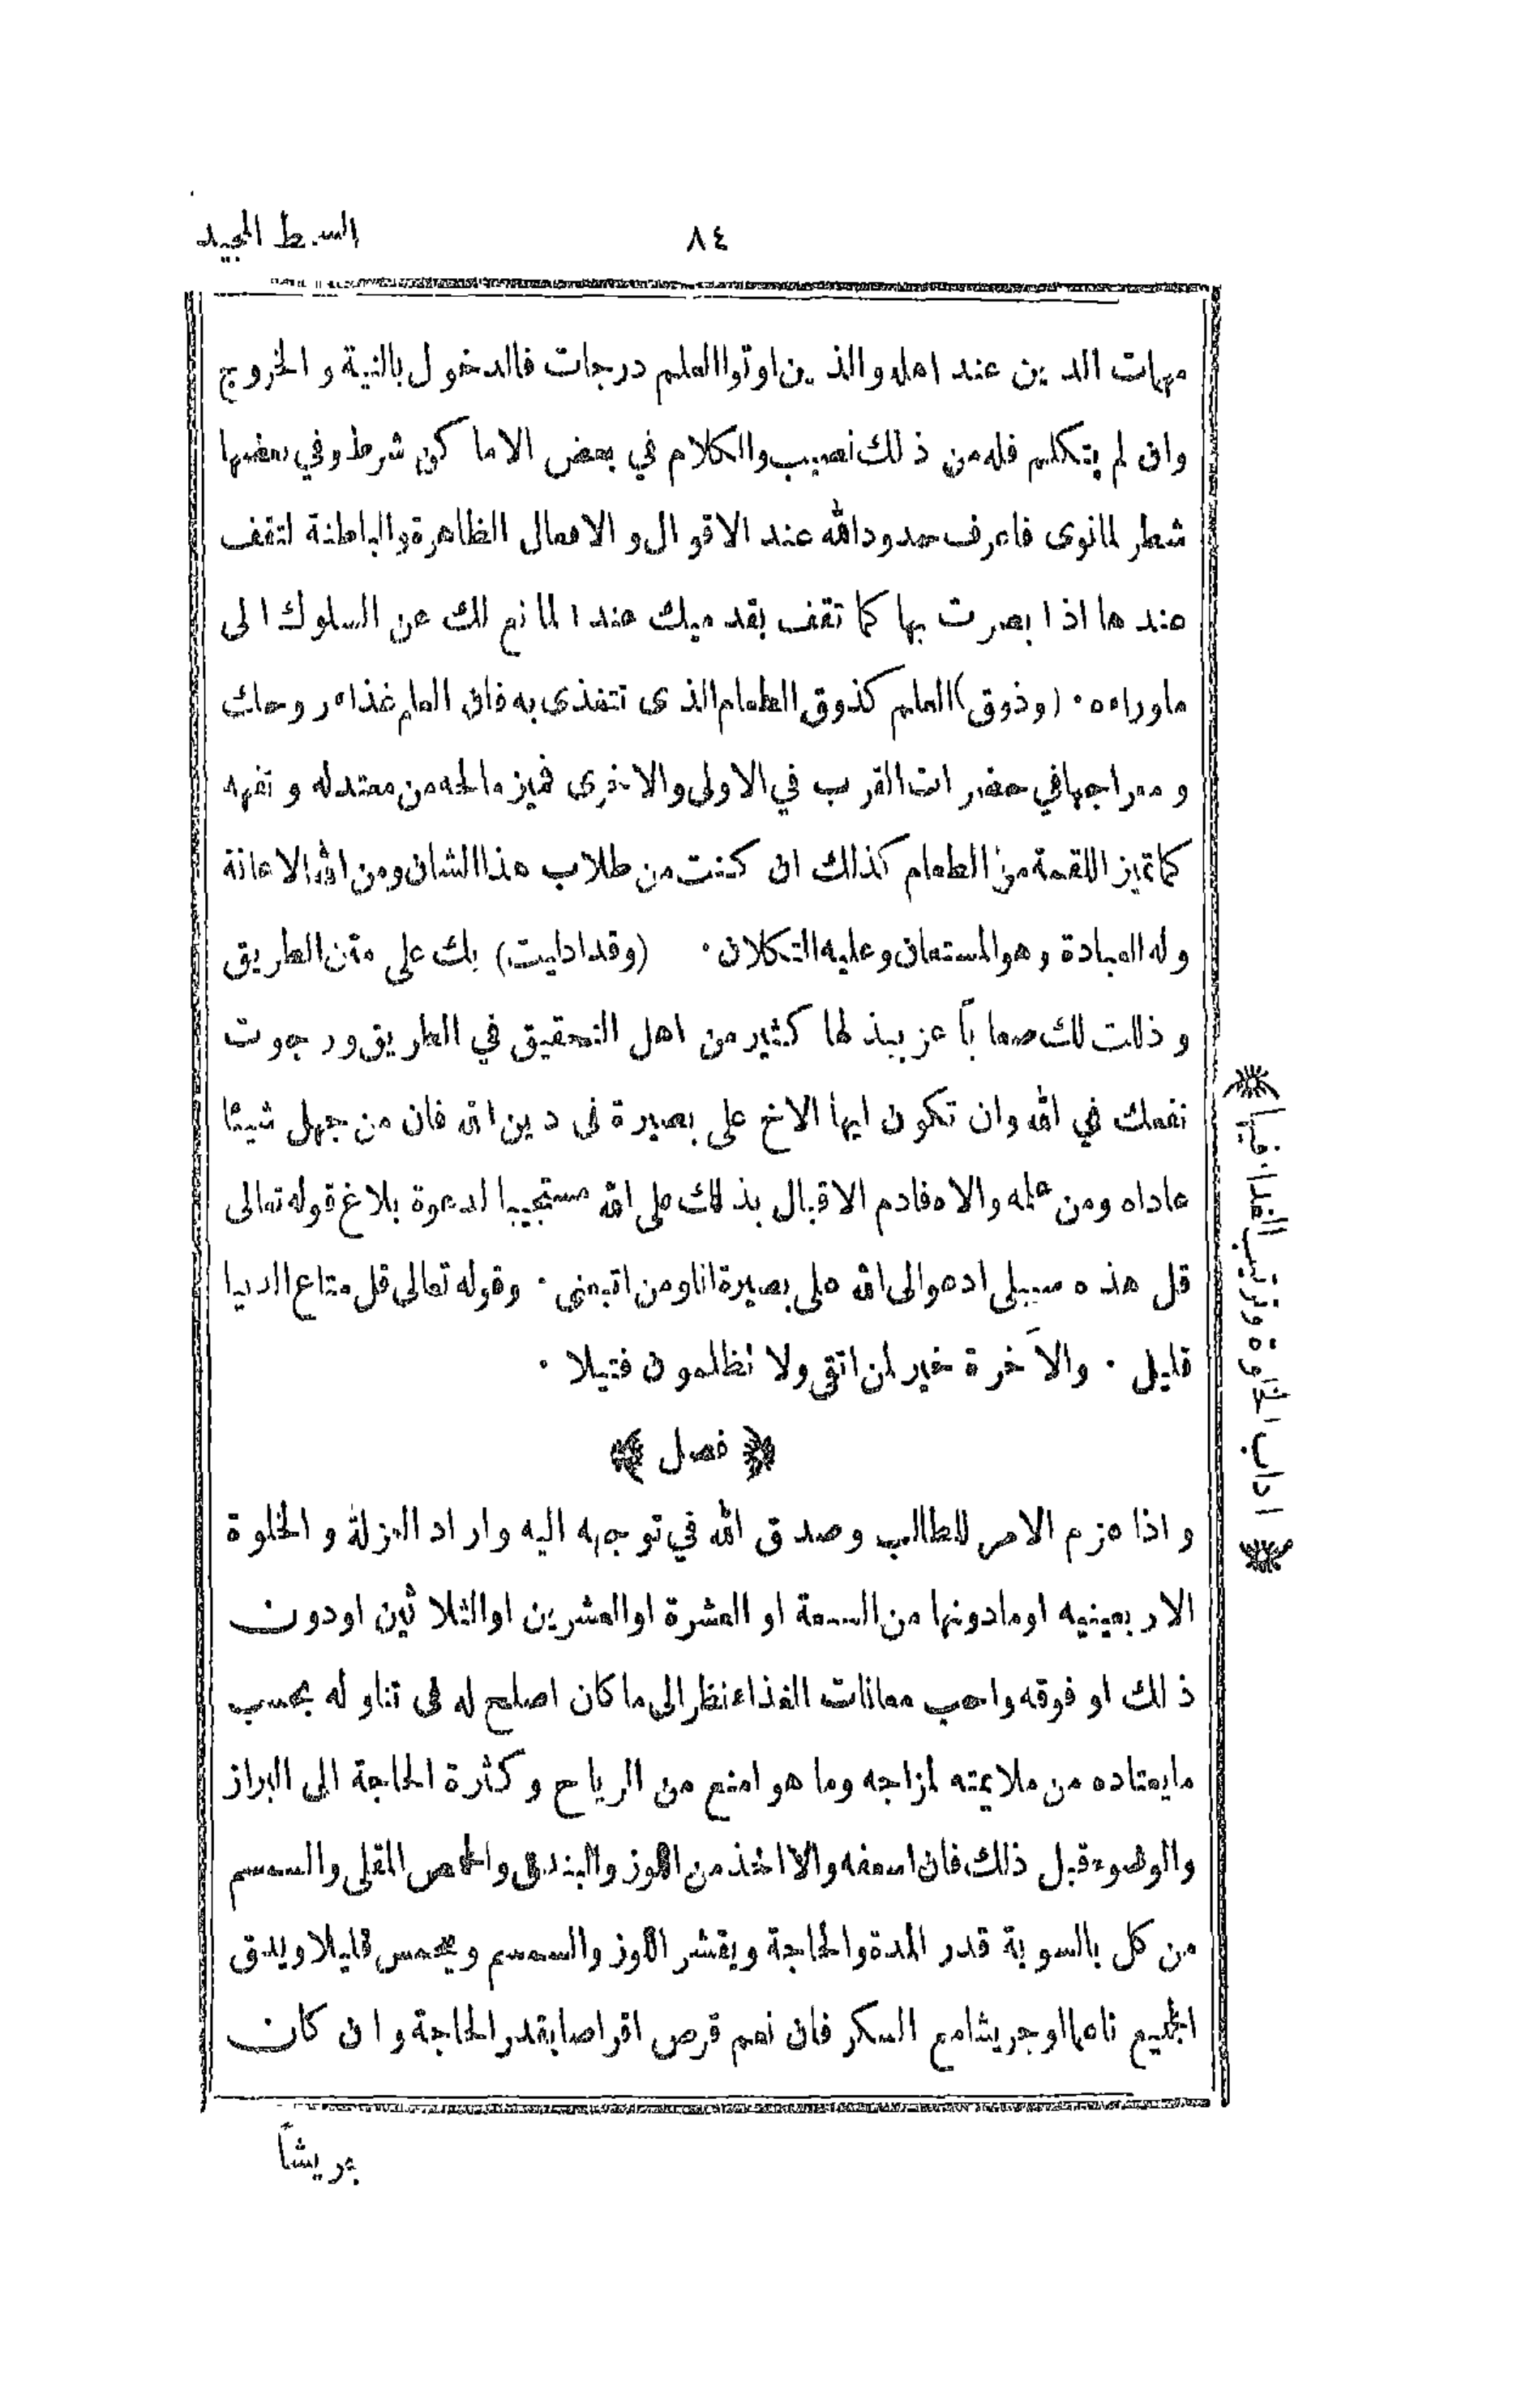 ٨٤
السمط المجيد
مهمات الدين عند اهله والذين اوتوا العلم درجات فالدخول بالنية و الخروج
وان لم يتكلم فله من ذلك نصيب والكلام في بعض الاماكن شرط وفي بعضها
شطر لما نوى فاعرف حدود الله عند الاقوال و الافعال الظاهرة والباطنة لتقف
عندها اذا بصرت بها كما تقف بقدميك عند المانع لك عن السلوك الى
ماوراءه · (وذوق) العلم كذوق الطعام الذى تتغذى به فان العلم غذاء روحك
و معراجها في حضرات القرب في الاولى والاخرى فميز مالحه من معتدله و تفهه
كما تميز اللقمة من الطعام كذلك ان كنت من طلاب هذا الشان ومن الله الاعانة
وله العبادة وهو المستعان وعليه التكلان · (وقد ادليت) بك على متن الطريق
و ذللت لك صعاباً عز ببذلها كثير من اهل التحقيق في الطريق ورجوت
نفعك في الله وان تكون ايها الاخ على بصيرة فى دين الله فان من جهل شيئا
عاداه ومن علمه والاه فادم الاقبال بذلك على الله مستجيبا لدعوة بلاغ قوله تعالى
قل هذه سبيلى ادعوا الى الله على بصيرة انا ومن اتبعنى · وقوله تعالى قل متاع الدنيا
قليل · والآخرة خير لمن اتقى ولا تظلمون فتيلا ·
﴿ فصل ﴾
و اذا عزم الامر للطالب وصدق الله في توجهه اليه واراد العزلة و الخلوة
الاربعينيه او مادونها من السبعة او العشرة او العشرين او الثلاثين او دون
ذلك او فوقه واحب معانات الغذاء نظر الى ما كان اصلح له فى تناوله بحسب
مايعتاده من ملايمته لمزاجه وما هو امنع من الرياح و كثرة الحاجة الى البراز
والوضوء قبل ذلك فان اسعفه والا اخذ من اللوز والبندق والحمص المقلى والسمسم
من كل بالسوية قدر المدة والحاجة ويقشر اللوز والسمسم ويحمس قليلا ويدق
الجميع ناعما او جريشا مع السكر فان نعم قرص اقراصا بقدر الحاجة وان كان
جريشاً
﴿ اداب الخلوة وترتيب الغداء فيها ﴾